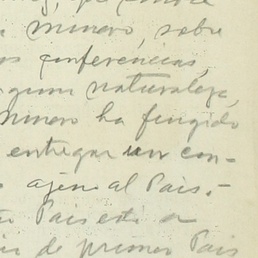 minero, sobre
conferencias,
naturaleza,
minero ha fungido
entregar un con-
ajeno al Pais.-
Pais esti a
de primer Pais